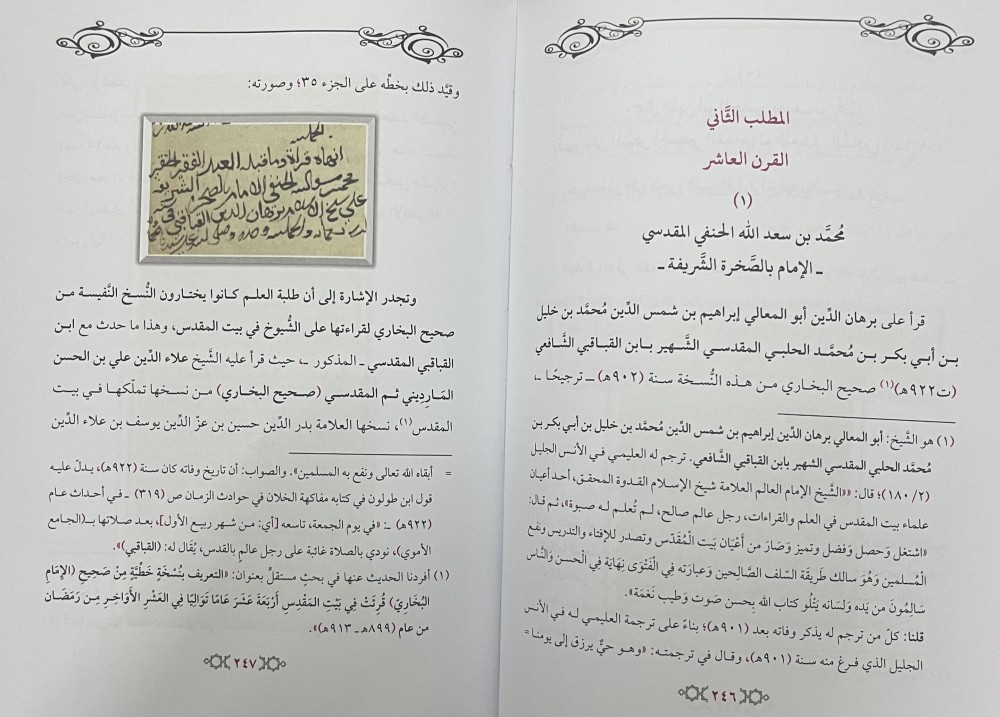 المطلب الثَّاني
القرن العاشر
(١)
مُحمَّد بن سعد الله الحنفي المقدسي
ـ الإمام بالصَّخرة الشَّريفة ـ
قرأ على برهان الدِّين أبو المعالي إبراهيم بن شمس الدِّين مُحمَّد بن خليل
بن أبي بكر بن مُحمَّد الحلبي المقدسي الشَّهير بابن القباقبي الشَّافعي
(ت٩٢٢هـ)(١) صحيح البخاري من هذه النُّسخة سنة (٩٠٢هـ) ـ ترجيحًا ـ،
(١) هو الشَّيخ: أبو المعالي برهان الدِّين إبراهيم بن شمس الدِّين مُحمَّد بن خليل بن أبي بكر بن
مُحمَّد الحلبي المقدسي الشهير بابن القباقبي الشَّافعي. ترجم له العليمي في الأنس الجليل
(٢/ ١٨٠)؛ قال: «الشَّيخ الإمام العالم العلامة شيخ الإسلام القدوة المحقق، أحد أعيان
علماء بيت المقدس في العلم والقراءات، رجل عالم صالح، لـم تُعلم له صبوة»، ثم قال:
«اشتغل وَحصل وَفضل وتميز وَصَارَ من أَعْيَان بَيت الْمُقَدّس وتصدر للإفتاء والتدريس ونفع
الْمُسلمين وَهُوَ سالك طَريقَة السّلف الصَّالِحين وَعبارَته فِي الْفَتْوَى نِهَايَة فِي الْحسن وَالنَّاس
سَالِمُونَ من يَده وَلسَانه يَتْلُو كتاب الله بِحسن صَوت وَطيب نَغمَة».
قلنا: كلّ من ترجم له يذكر وفاته بعد (٩٠١هـ)؛ بناءً على ترجمة العليمي له في الأنس
الجليل الذي فرغ منه سنة (٩٠١هـ)، وقال في ترجمته: «وهو حيٌّ يرزق إلى يومنا =
٢٤٦
وقيَّد ذلك بخطِّه على الجزء ٣٥؛ وصورته:
الحمد لله
انهاه قراة وماقبله العبد الفقير الحقير
محمد بن سعد الله الحنفي الامام بالصخرة الشريفة
على شيخ الاسلام برهان الدين القباقبي
وتجدر الإشارة إلى أن طلبة العلم كانوا يختارون النُّسخ النَّفيسة من
صحيح البخاري لقراءتها على الشُّيوخ في بيت المقدس، وهذا ما حدث مع ابن
القباقبي المقدسي ـ المذكور ـ، حيث قرأ عليه الشَّيخ علاء الدِّين علي بن الحسن
المَارِديني ثم المقدسي (صحيح البخاري) من نسخها تملّكها في بيت
المقدس(١)، نسخها العلامة بدر الدِّين حسين بن عزّ الدِّين يوسف بن علاء الدِّين
= أبقاه الله تعالى ونفع به المسلمين». والصواب: أن تاريخ وفاته كان سنة (٩٢٢هـ)، يدلّ عليه
قول ابن طولون في كتابه مفاكهة الخلان في حوادث الزمان ص (٣١٩) ـ في أحداث عام
(٩٢٢هـ) ـ: «في يوم الجمعة، تاسعه [أي: من شهر ربيع الأول]، بعد صلاتها بـ(الجامع
الأموي)، نودي بالصلاة غائبة على رجل عالم بالقدس، يُقال له: (القباقبي)».
(١) أفردنا الحديث عنها في بحثٍ مستقلٍّ بعنوان: «التعريف بنُسْخَةٍ خَطيَّةٍ مِنْ صَحِيحِ (الإِمَامِ
البُخَارِيّ) قُرِئَتْ فِي بَيْتِ المَقْدِسِ أَرْبَعَةَ عَشَرَ عَامًا تَوَالِيًا فِي العَشْرِ الأَوَاخِرِ مِـن رَمَضَان
من عام (٨٩٩هـ ـ ٩١٣هـ)».
٢٤٧